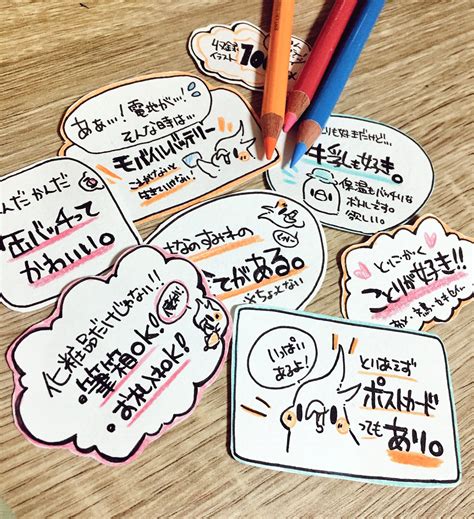 収録
イラスト
100
ああ…！電池が…
そんな時は…
モバイルバッテリー
これがないと
生きていけない!
とりも好きだけど…
牛乳も好き。
保温もバッチリな
ボトルです。
欲しい。
んだ かんだ
缶バッチって
かわいい。
なのすみもの
てがある。
ちょっとない
とにかく
ことりが好き!!
化粧品だけじゃない!!
筆箱OK!
おれOK!
いっぱい
あるよ！
とりあえず
ポストカード
っても
あり。